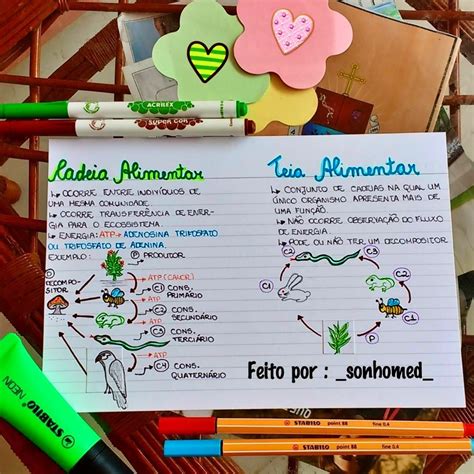 ACRILEX
SUPER COR
Kadeia Alimentar
↳ OCORRE ENTRE INDIVÍDUOS DE
UMA MESMA COMUNIDADE.
↳ OCORRE TRANSFERÊNCIA DE ENER-
GIA PARA O ECOSSISTEMA.
↳ ENERGIA: ATP → ADENOSINA TRIFOSFATO
OU TRIFOSFATO DE ADENINA.
EXEMPLO:
P PRODUTOR
→ ATP (CALOR)
D DECOMPO-
SITOR
C1 CONS.
PRIMÁRIO
→ ATP
C2 CONS.
SECUNDÁRIO
→ ATP
C3 CONS.
TERCIÁRIO
→ ATP
C4 CONS.
QUATERNÁRIO
Teia Alimentar
↳ CONJUNTO DE CADEIAS NA QUAL UM
ÚNICO ORGANISMO APRESENTA MAIS DE
UMA FUNÇÃO.
↳ NÃO OCORRE OBSERVAÇÃO DO FLUXO
DE ENERGIA.
↳ PODE OU NÃO TER UM DECOMPOSITOR
C2 C3
C1
C2
P
C1
Feito por : _sonhomed_
STABILO NEON
STABILO point 88 fine 0.4
STABILO point 88 fine 0.4